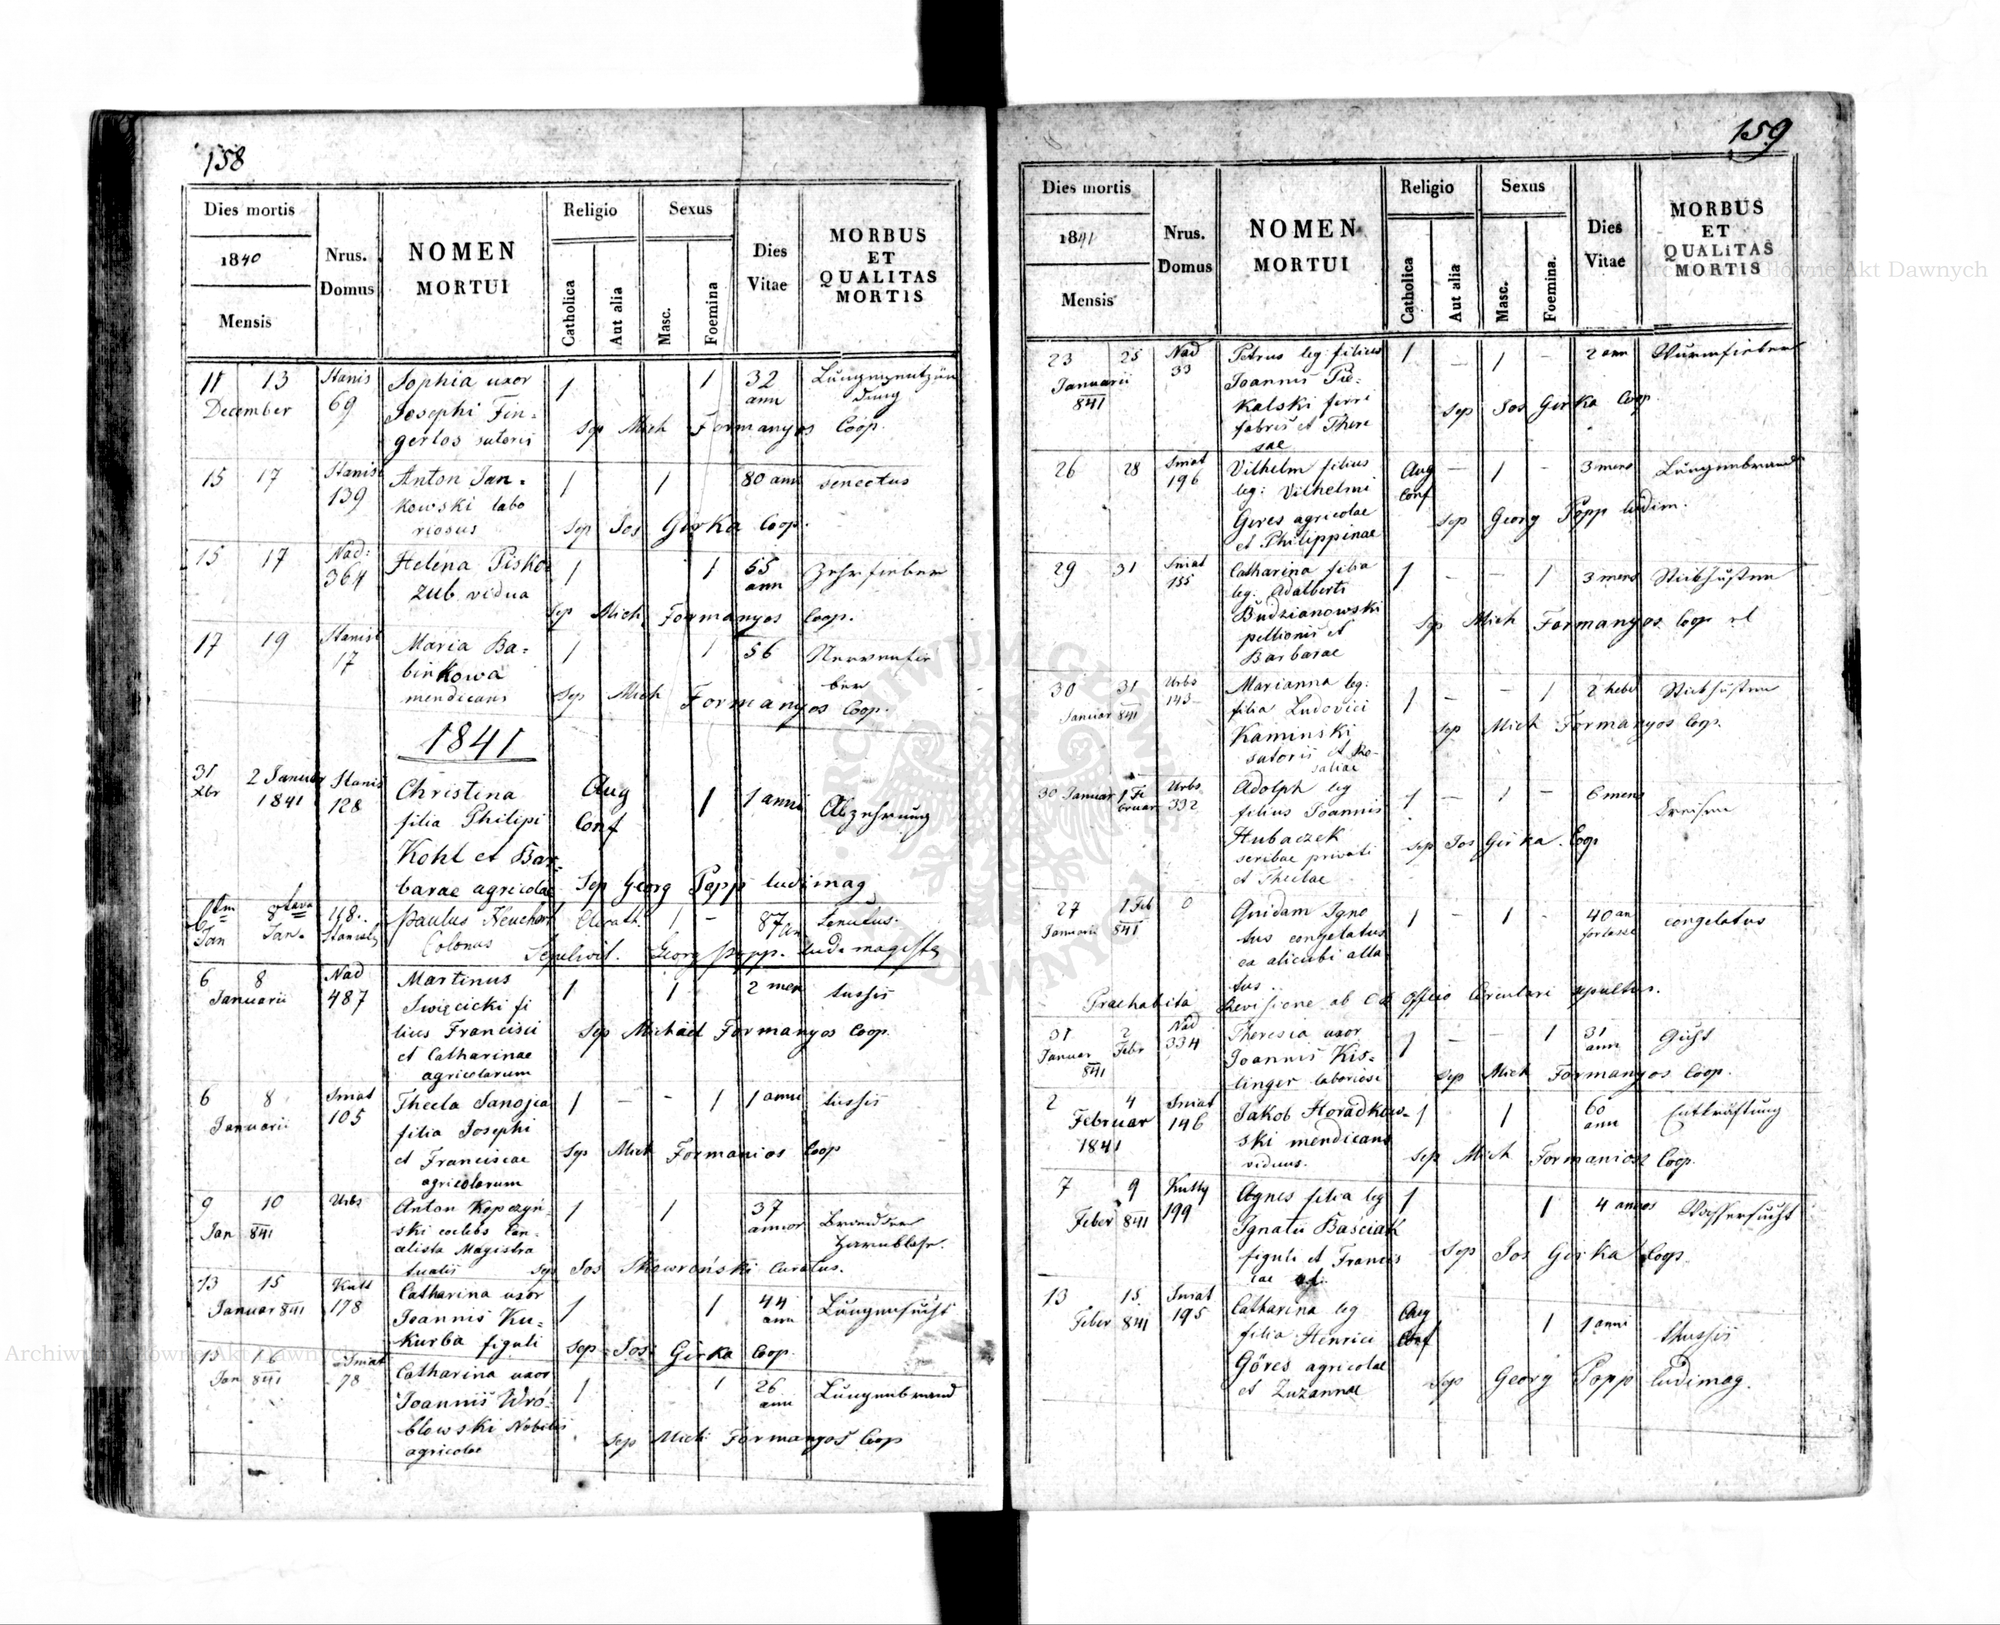 158
Dies mortis
1840
Mensis
Nrus.
Domus
NOMEN
MORTUI
Religio
Catholica
Aut alia
Sexus
Masc.
Foemina
Dies
Vitae
MORBUS
ET
QUALITAS
MORTIS
11 13 Stanis Sophia uxor 1 1 32 Lungenentzün
December 69 Josephi Fin- ann dung
gerlos sutoris Sep Mich Formanyos Coop.
15 17 Stanis Anton Jan- 1 1 80 ann senectus
139 kowski labo
riosus Sep Jos Girka Coop.
15 17 Nad: Helena Pisko- 1 1 55 Zehrfieber
364 zub vidua ann
Sep Mich Formanyos Coop.
17 19 Stanisl Maria Ba- 1 1 56 Nervenfie
17 binkowa ber
mendicans Sep Mich Formanyos Coop.
1841
31 2 Januar Stanis Christina Aug 1 1 anni Abzehrung
Xbr 1841 128 filia Philipi Conf
Kohl et Bar-
barae agricolae Sep Georg Popp ludimag
8 118. Paulus 1 - 87 an
Jan Jan. Colonus Sepelivit. Georg Popp. ludi magister
6 8 Nad Martinus 1 1 2 men tussis
Januarii 487 Swięcicki fi
lius Francisci Sep Michael Formanyos Coop.
et Catharinae
agricolarum
6 8 Smat Thecla Sanojca 1 - - 1 1 anni tussis
Januarii 105 filia Josephi
et Franciscae Sep Mich Formanios Coop
agricolarum
9 10 Urbs Anton Kopczyń- 1 1 37 Brand der
Jan 841 ski coelebs Can- annor Harnblase.
celista Magistra
tualis Sep Jos Skowroński Curatus.
13 15 Kutt Catharina uxor 1 1 44 Lungensucht
Januar 841 178 Joannis Ku- ann
kurba figuli Sep Jos Girka Coop.
16 Smat Catharina uxor 1 1 26 Lungenbrand
Jan 841 78 Joannis Wró- ann
blowski Nobilis
agricolae Sep Mich Formanyos Coop
159
Dies mortis
1841
Mensis
Nrus.
Domus
NOMEN
MORTUI
Religio
Catholica
Aut alia
Sexus
Masc.
Foemina.
Dies
Vitae
MORBUS
ET
QUALITAS
MORTIS
23 25 Nad Petrus leg: filius 1 - 1 - 2 ann Wurmfieber
Januarii 33 Joannis Pie-
841 kalski ferri Sep Jos Girka Coop.
fabris et There
sae
26 28 Smat Vilhelm filius Aug - 1 - 3 mens Lungenbrand
196 leg: Vilhelmi Conf
Geres agricolae Sep Georg Popp ludim.
et Philippinae
29 31 Smat Catharina filia 1 - - 1 3 mens Stickhusten
155 leg. Adalberti
Budzianowski Sep Mich Formanyos Coop
pellionis et
Barbarae
30 31 Urbs Marianna leg: 1 - - 1 2 hebd Stickhusten
Januar 841 143 filia Ludovici
Kaminski Sep Mich Formanyos Coop.
sutoris et Ro-
saliae
30 Januar 1 Fe Urbs Adolph leg 1 - 1 - 6 mens
bruar 332 filius Joannis
Hubaczek Sep Jos Girka. Coop
scribae privati
et Theclae
27 1 Feb 0 Quidam Igno 1 - 1 - 40 an congelatus
Januarii 841 tus congelatus fortasse
ex alicubi alla
tus.
Praehabita Revisione ab Officio Circulari sepultus.
31 2 Nad Theresia uxor 1 - - 1 31 Gicht
Januar Febr 334 Joannis Kis- ann
841 linger laboriosi Sep Mich Formanyos Coop.
2 4 Smiat Jakob Horadkow- 1 1 60 Entkräftung
Februar 146 ski mendicans ann
1841 viduus. Sep Mich Formaniosz Coop.
7 9 Kutty Agnes filia leg 1 1 4 annos Wassersucht
Feber 841 199 Ignatii Basciak
figuli et Francis Sep Jos Girka Coop.
cae
13 15 Smat Catharina leg Aug 1 1 anni thussis
Feber 841 195 filia Henrici Conf
Göres agricolae Sep Georg Popp ludimag.
et Zuzannae
Archiwum Główne Akt Dawnych
Archiwum Główne Akt Dawnych
ARCHIWUM GŁÓWNE AKT DAWNYCH